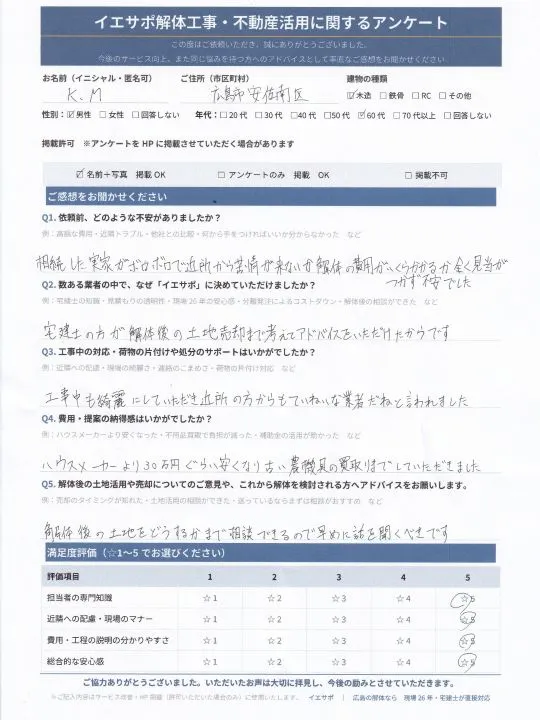 イエサポ解体工事・不動産活用に関するアンケート
この度はご依頼いただき、誠にありがとうございました。
今後のサービス向上、また同じ悩みを持つ方へのアドバイスとして率直なご感想をお聞かせください
お名前（イニシャル・匿名可） ご住所（市区町村） 建物の種類
K.M 広島市安佐南区 ☑木造 □鉄骨 □RC □その他
性別：☑男性 □女性 □回答しない 年代：□20代 □30代 □40代 □50代 ☑60代 □70代以上 □回答しない
掲載許可 ※アンケートをHPに掲載させていただく場合があります
☑名前＋写真 掲載OK □アンケートのみ 掲載 OK □掲載不可
ご感想をお聞かせください
Q1. 依頼前、どのような不安がありましたか？
例：高額な費用・近隣トラブル・他社との比較・何から手をつければいいか分からなかった など
相続した実家がボロボロで近所から苦情が来ないか解体の費用がいくらかかるか全く見当が
つかず不安でした
Q2. 数ある業者の中で、なぜ「イエサポ」に決めていただけましたか？
例：宅建士の知識・見積もりの透明性・現場26年の安心感・分離発注によるコストダウン・解体後の相談ができた など
宅建士の方が解体後の土地売却まで考えてアドバイスをいただけたからです
Q3. 工事中の対応・荷物の片付けや処分のサポートはいかがでしたか？
例：近隣への配慮・現場の綺麗さ・連絡のこまめさ・荷物の片付け対応 など
工事中も綺麗にしていただき近所の方からもていねいな業者だねと言われました
Q4. 費用・提案の納得感はいかがでしたか？
例：ハウスメーカーより安くなった・不用品買取で負担が減った・補助金の活用が助かった など
ハウスメーカーより30万円ぐらい安くなり古い農機具の買取りまでしていただきました
Q5. 解体後の土地活用や売却についてのご意見や、これから解体を検討される方へアドバイスをお願いします。
例：売却のタイミングが知れた・土地活用の相談ができた・迷っているならまずは相談がおすすめ など
解体後の土地をどうするかまで相談できるので早めに話を聞くべきです
満足度評価（☆1～5でお選びください）
評価項目 1 2 3 4 5
担当者の専門知識 ☆1 ☆2 ☆3 ☆4 ☆5
近隣への配慮・現場のマナー ☆1 ☆2 ☆3 ☆4 ☆5
費用・工程の説明の分かりやすさ ☆1 ☆2 ☆3 ☆4 ☆5
総合的な安心感 ☆1 ☆2 ☆3 ☆4 ☆5
ご協力ありがとうございました。いただいたお声は大切に拝見し、今後の励みとさせていただきます。
※ご記入内容はサービス改善・HP掲載（許可いただいた場合のみ）に使用いたします。 イエサポ ｜ 広島の解体なら 現場26年・宅建士が直接対応